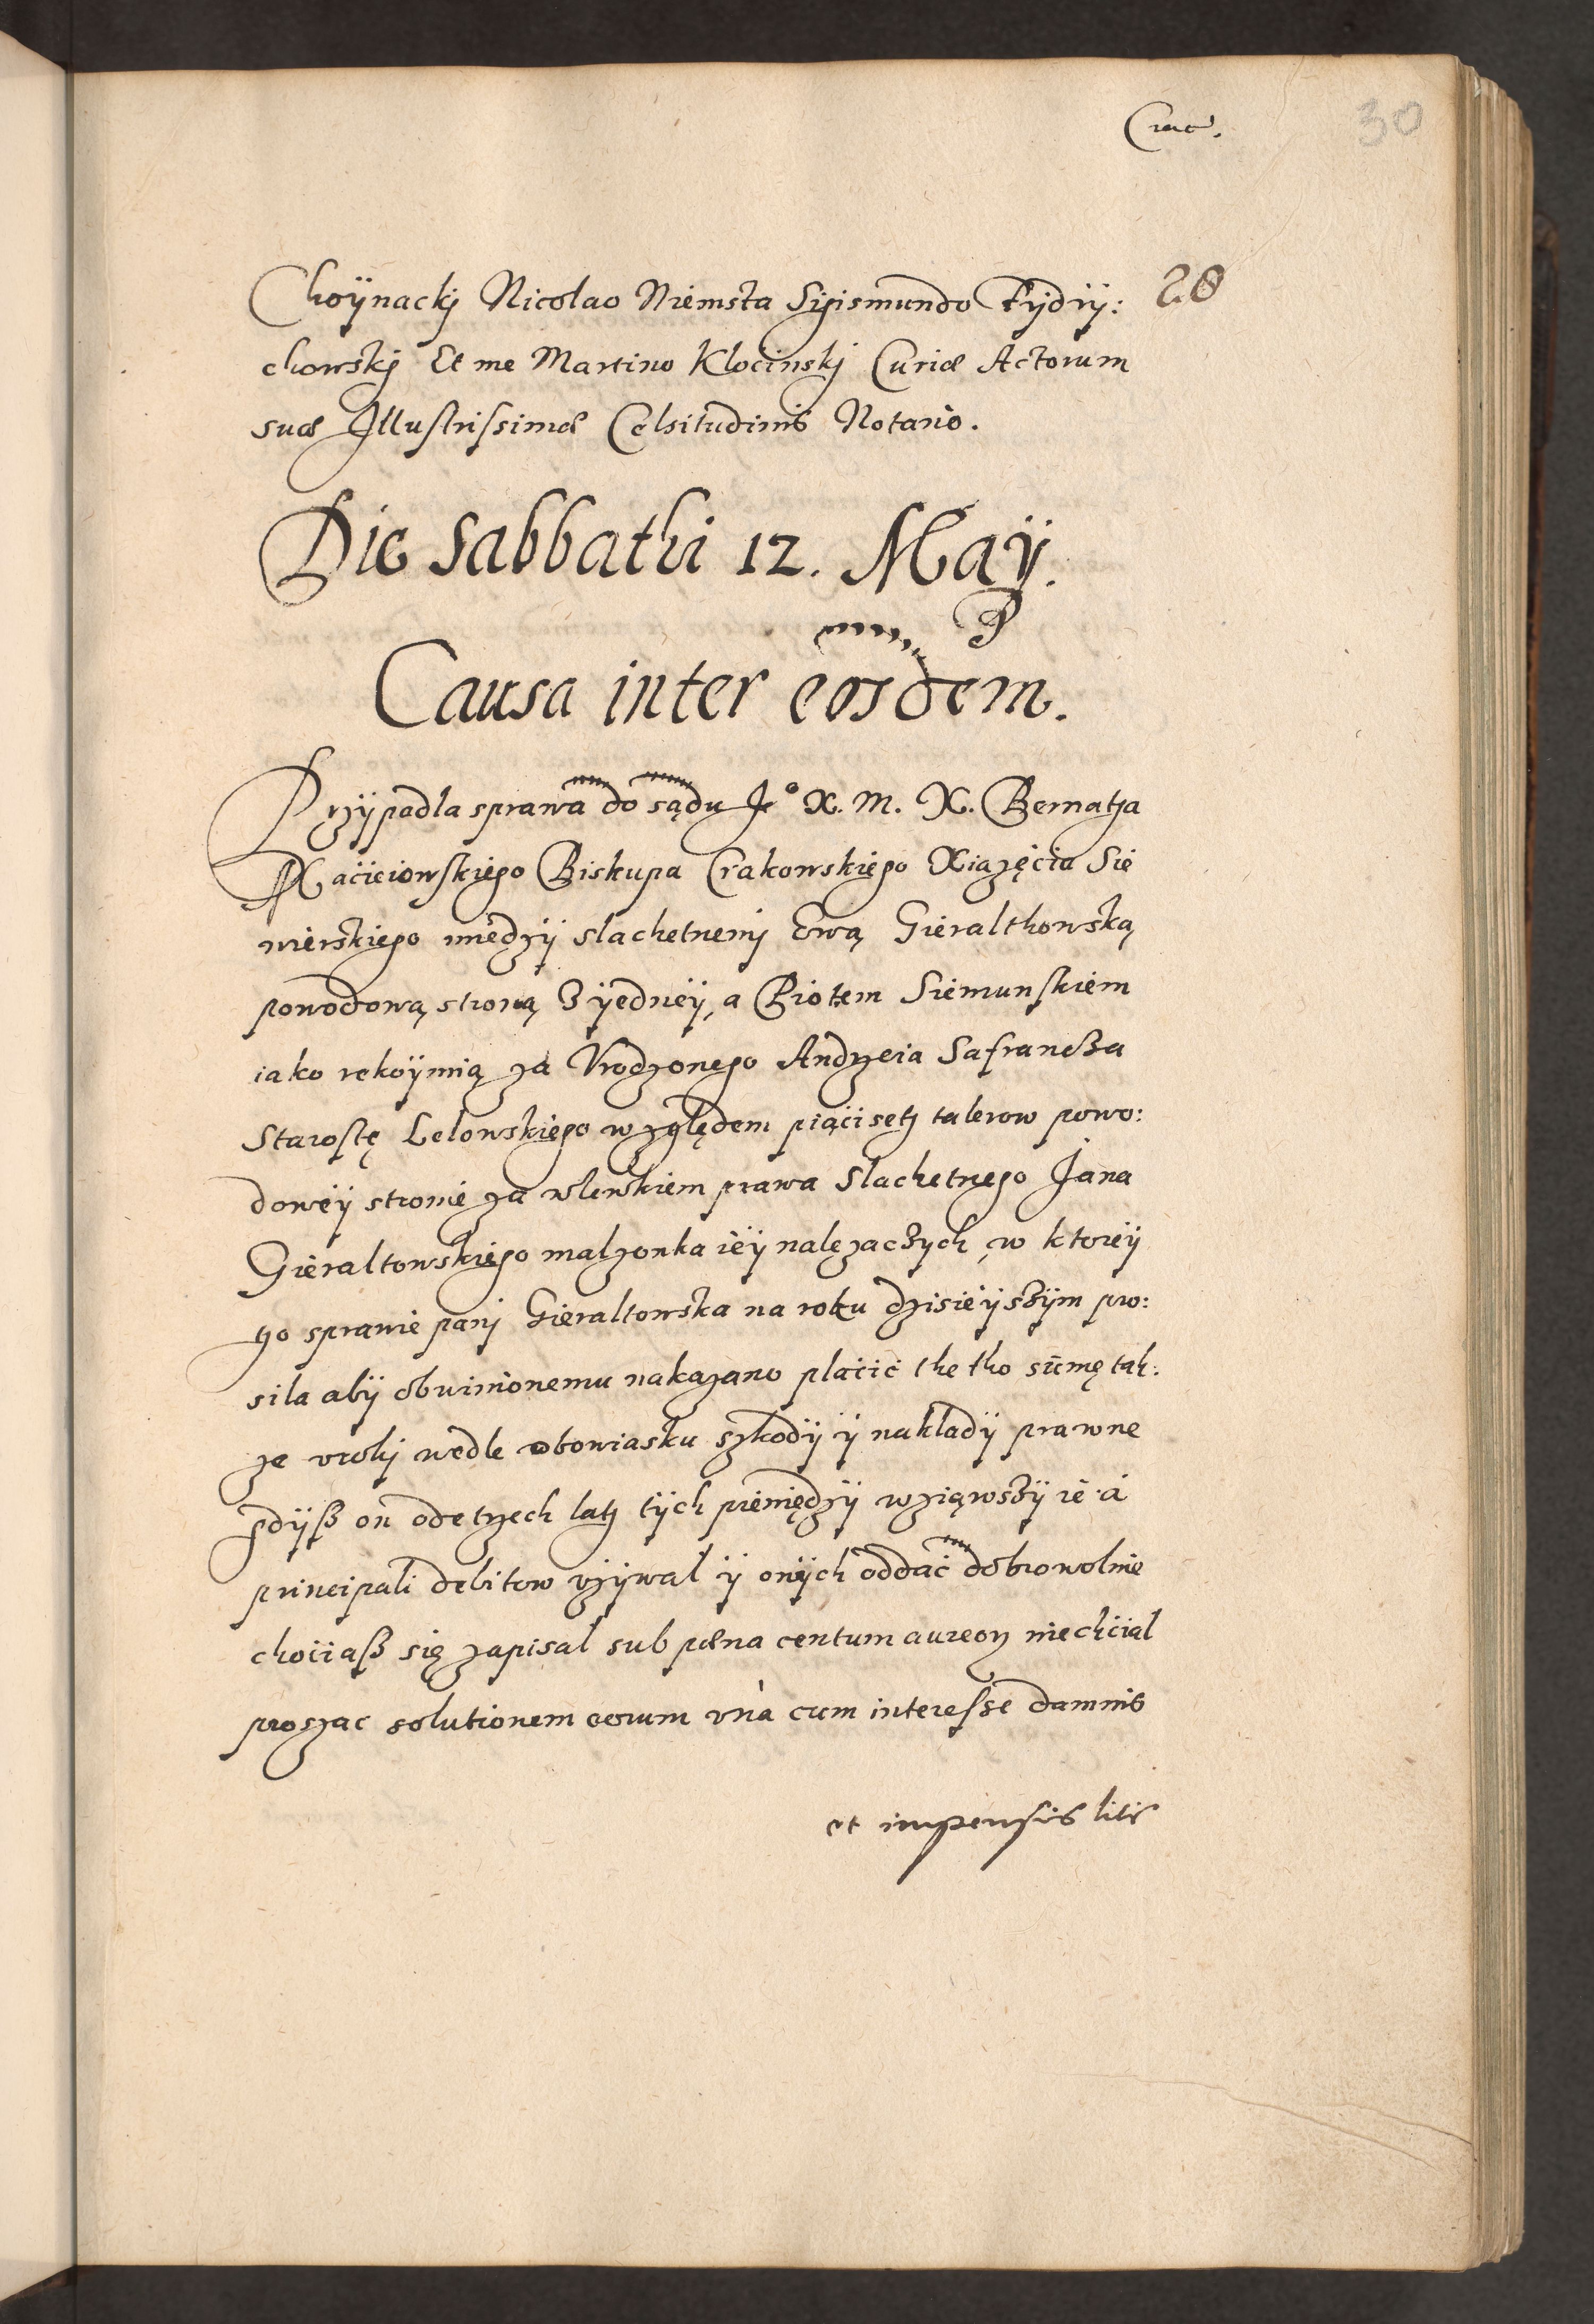 Crac.
30
28
Choÿnackj Nicolao Niemsta Sigismundo Fÿdrÿ:
chowskj Et me Martino Klocinskj Curiæ Actorum
suæ Illustrissimæ Celsitudinis Notario.
Die Sabbathi 12. Maÿ.
Causa inter eosdem.
Przÿpadla sprawa do sądu Je° X. M. X. Bernatha
Macieiowskiego Biskupa Crakowskiego Xiązęcia Sie
wierskiego miedzÿ slachetnenj Ewą Gieralthowską
powodową stroną z ÿednéÿ, a Piotem Siemunskiem
iako rekoÿmią za Vrodzonego Andrzeia Safrancza
Starostę Lelowskiego względem piącisetj talerow powo:
dowéÿ stronie za wlewkiem prawa Slachetnego Jana
Gieraltowskiego malzonka iéÿ nalęzaczych, w ktoréÿ
to sprawie panj Gieraltowska na roku dzisiéÿszÿm pro:
sila abÿ obwinionemu nakazano placić the tho sūmę tak:
ze vrokj wedle obowiasku szkodÿ ÿ nakladÿ prawne
gdÿß on ode trzech latj tÿch pieniędzÿ wziąwszÿ ie á
principali debitore vzÿwal ÿ onÿch oddać dobrowolnie
chociaß się zapisal sub pæna centum aureorum niechcial
prosząc solutionem eorum vná cum interesse damnis
et impensis litis